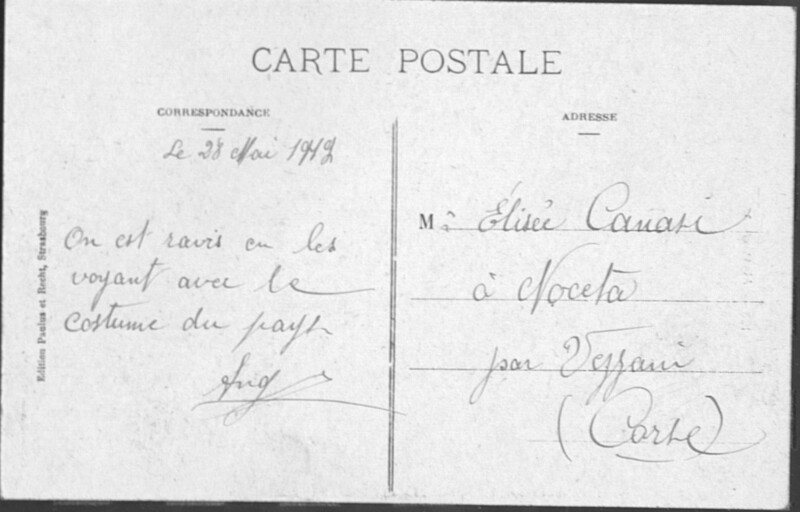 CARTE POSTALE
CORRESPONDANCE
Le 28 Mai 1919
On est ravis en les
voyant avec le
costume du pays
Ang
ADRESSE
M Élisée Canari
à Noceta
par Vezzani
(Corse)
Edition Paulus et Recht, Strasbourg